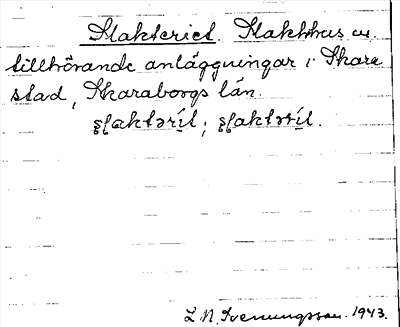 Slakteriet. Slakthus m.
tillhörande anläggningar i Skara
stad, Skaraborgs län.
L. N. Svenungsson. 1943.